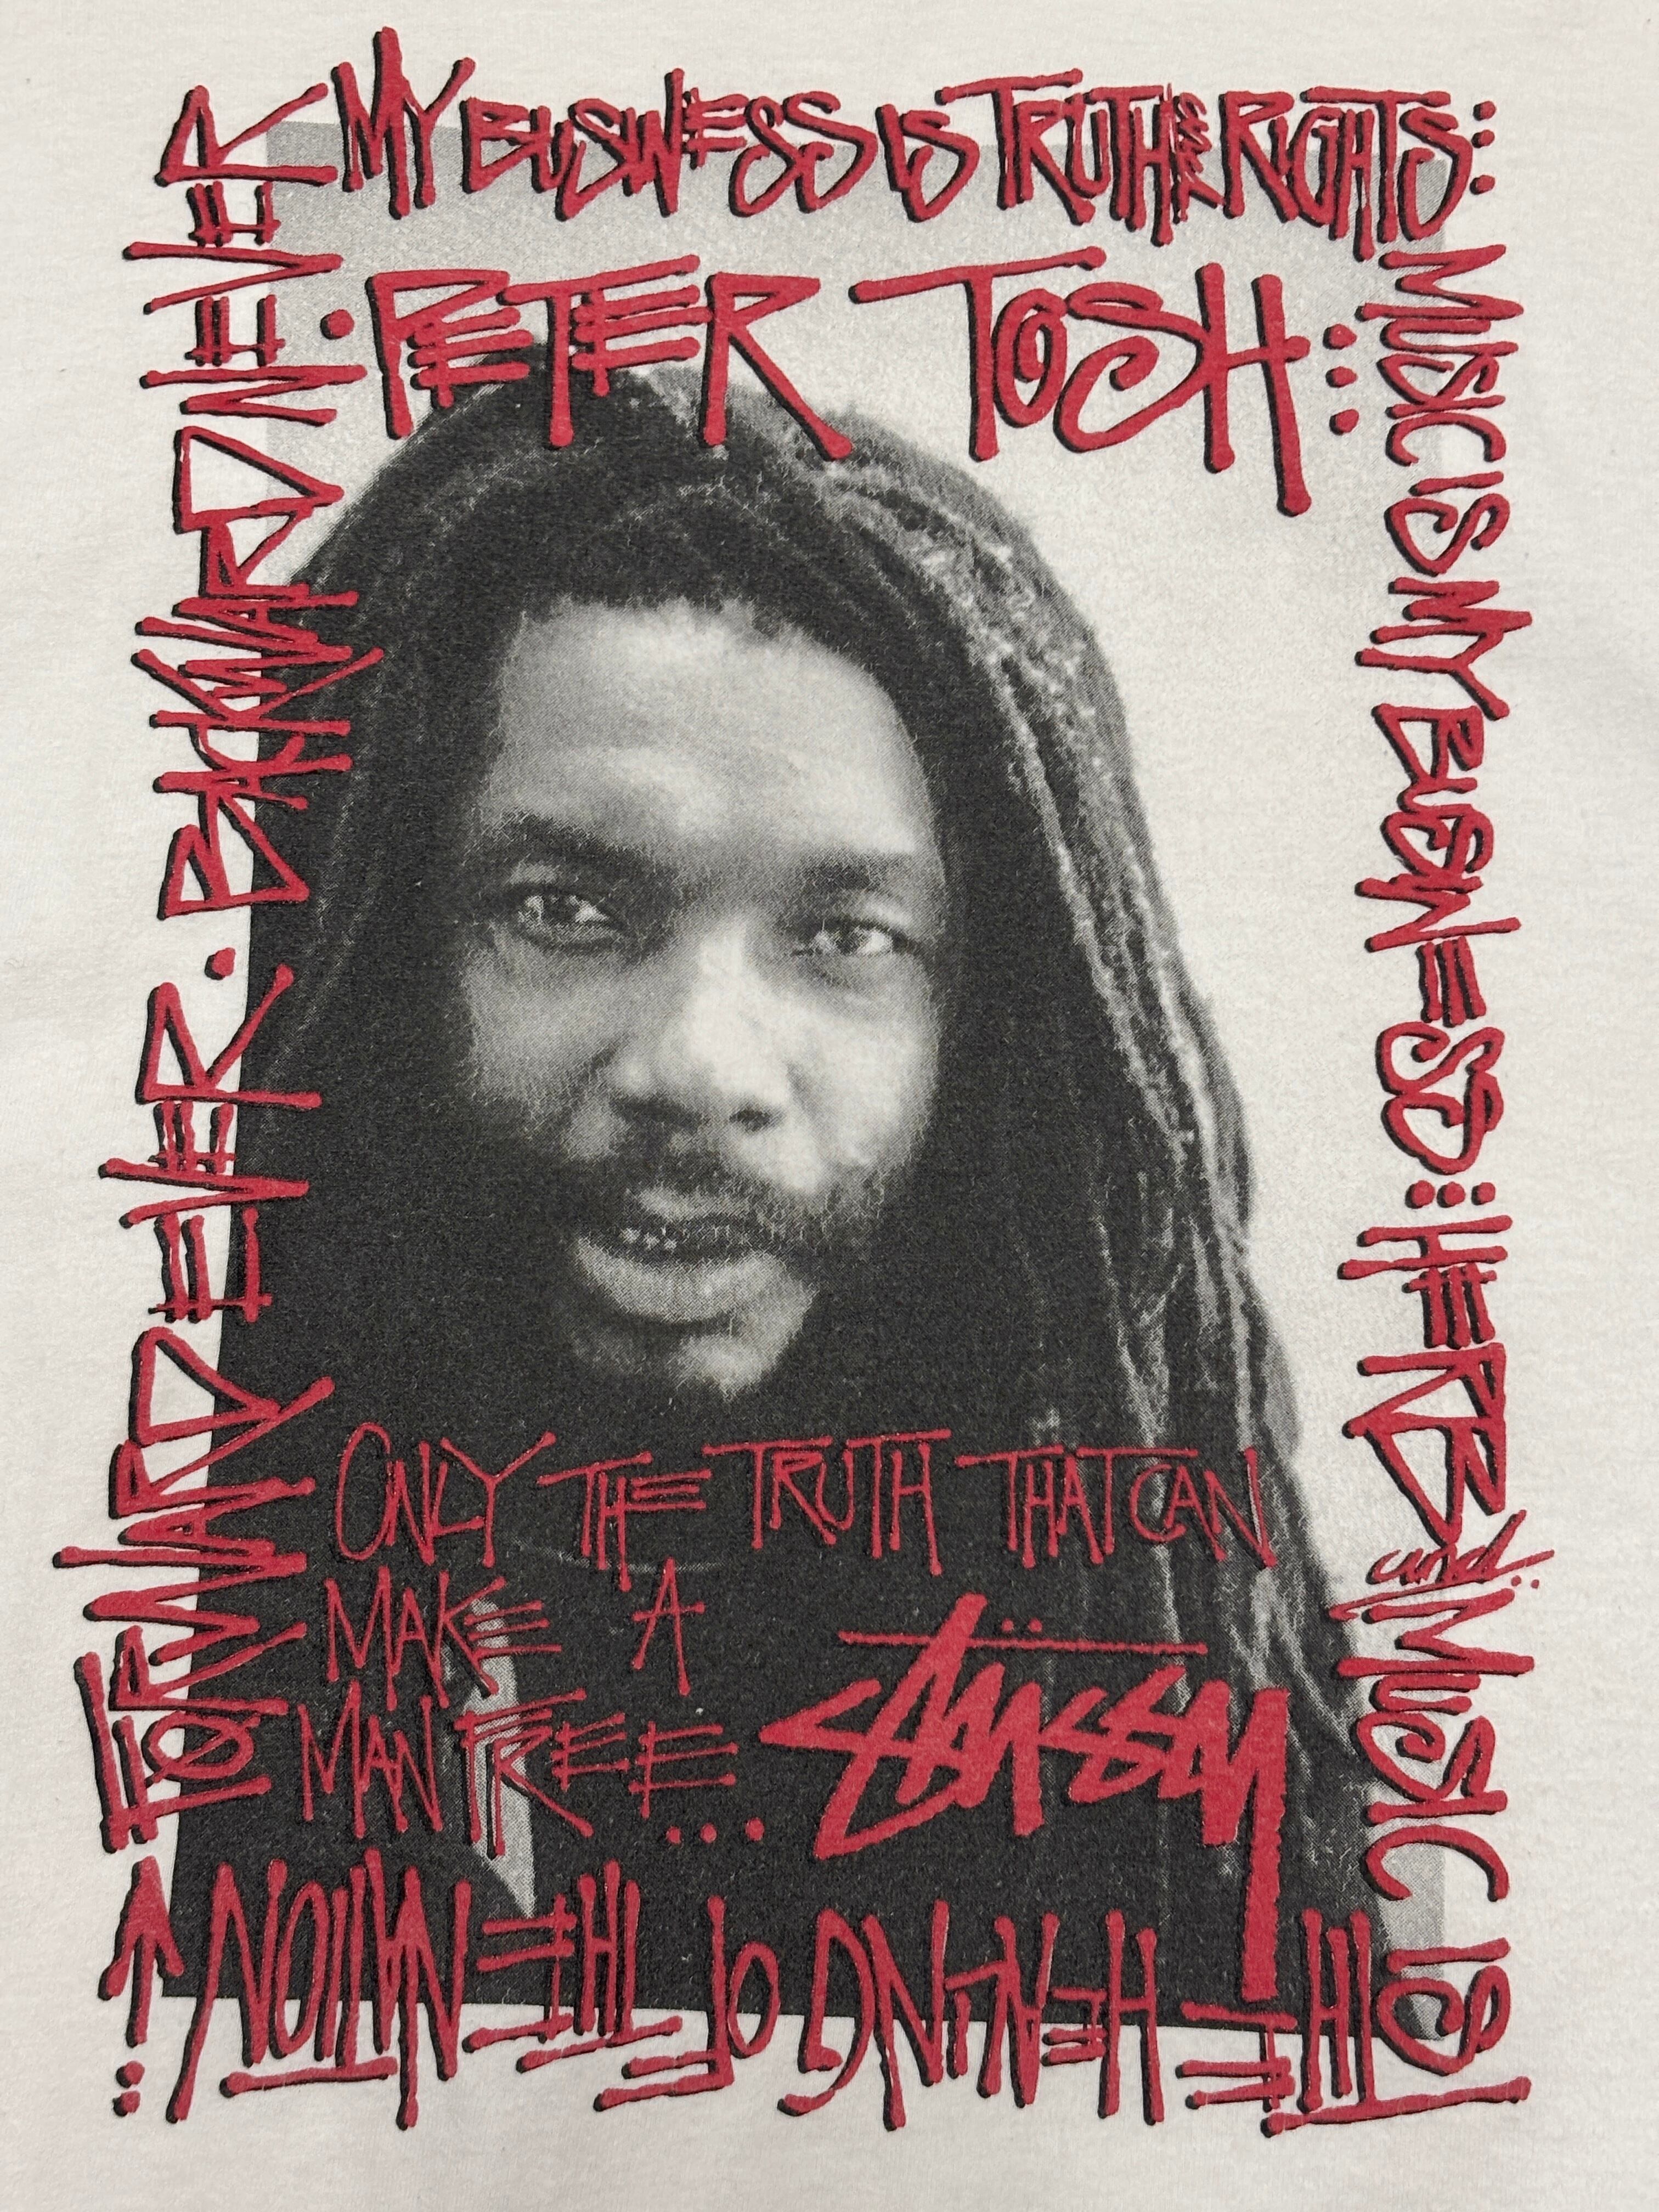 MY BUSINESS IS TRUTH RIGHTS:
• PETER TOSH:
MUSIC IS MY BUSINESS: HERB and.. MUSIC IS
THE HEALING OF THE NATION
: → FORWARD EVER. BACKWARD NEVER
ONLY THE TRUTH THAT CAN
MAKE A
MAN FREE...
Stüssy